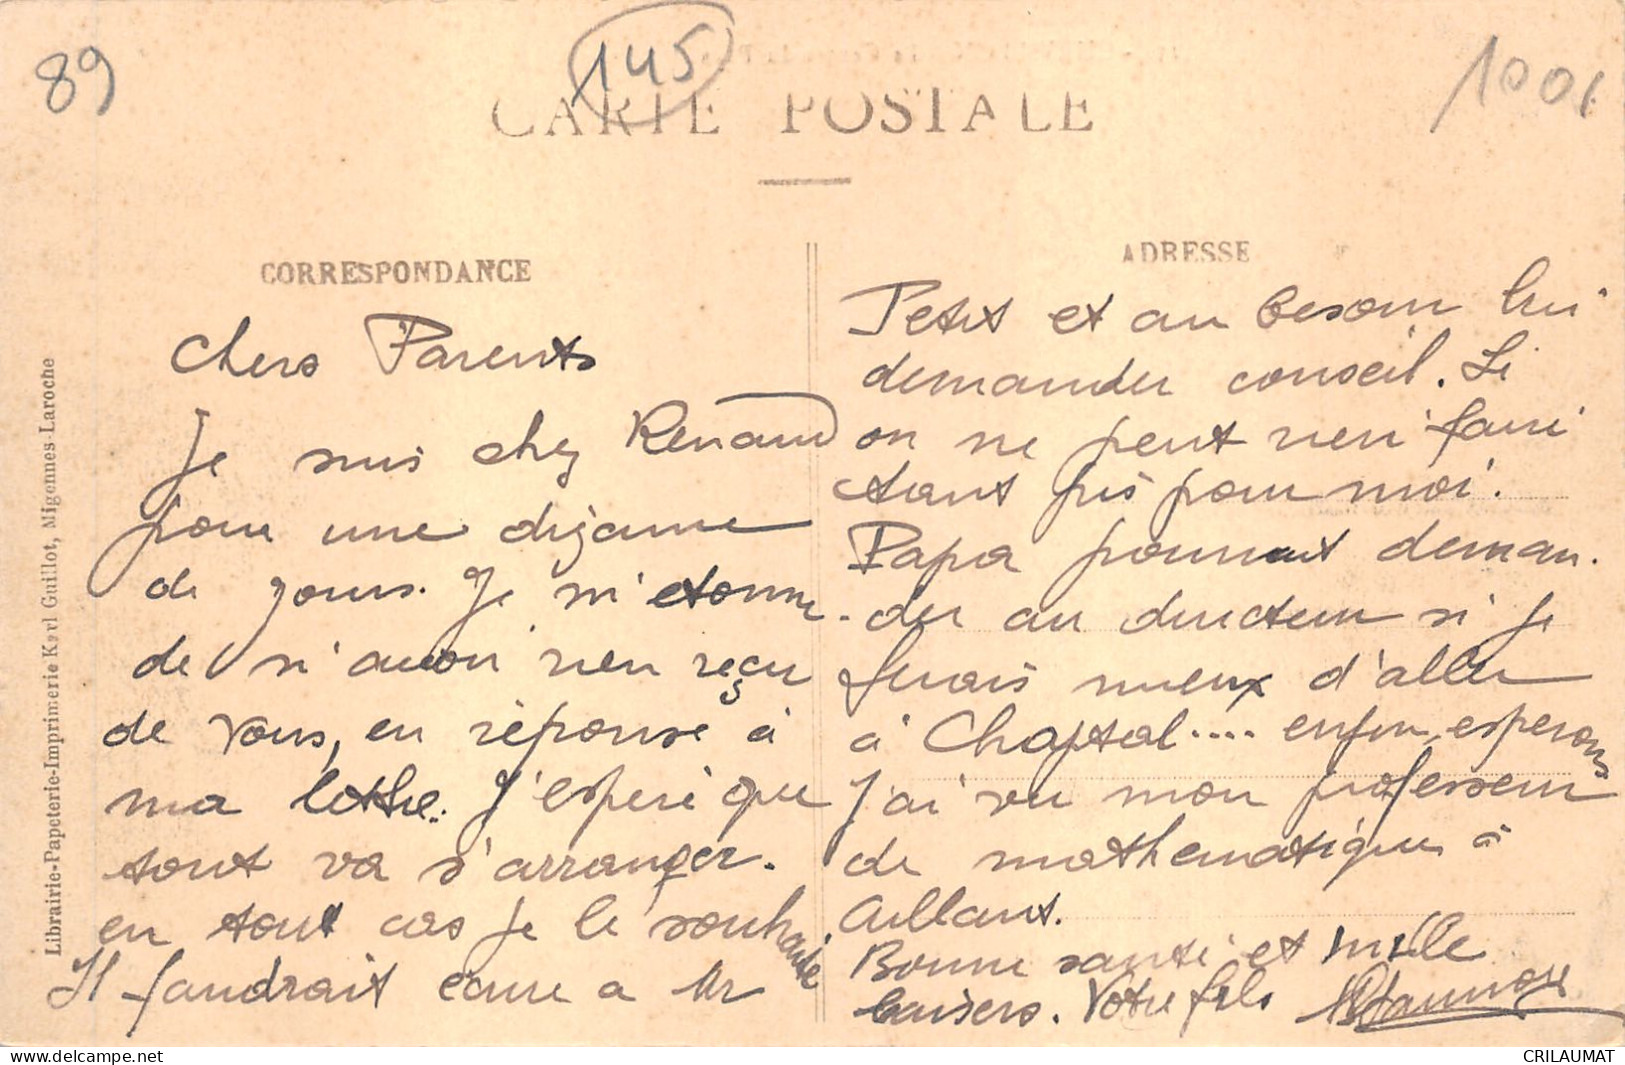 89
145
1001
CARTE POSTALE
CORRESPONDANCE
ADRESSE
Librairie-Papeterie-Imprimerie Karl Guillot, Migennes-Laroche
Chers Parents
Je suis chez Renaud
pour une dizaine
de jours. Je m'étonne
de n'avoir rien reçu
de vous, en réponse à
ma lettre. J'espère que
tout va s'arranger.
en tout cas je le souhaite
Il faudrait écrire à Mr
Petit et au besoin lui
demander conseil. Si
on ne peut rien faire
tant pis pour moi.
Papa pourrait deman-
der au directeur si je
ferais mieux d'aller
à Chaptal.... enfin, espérons
J'ai vu mon professeur
de mathématique à
Aillant.
Bonne santé et mille
baisers. Votre fils
CRILAUMAT